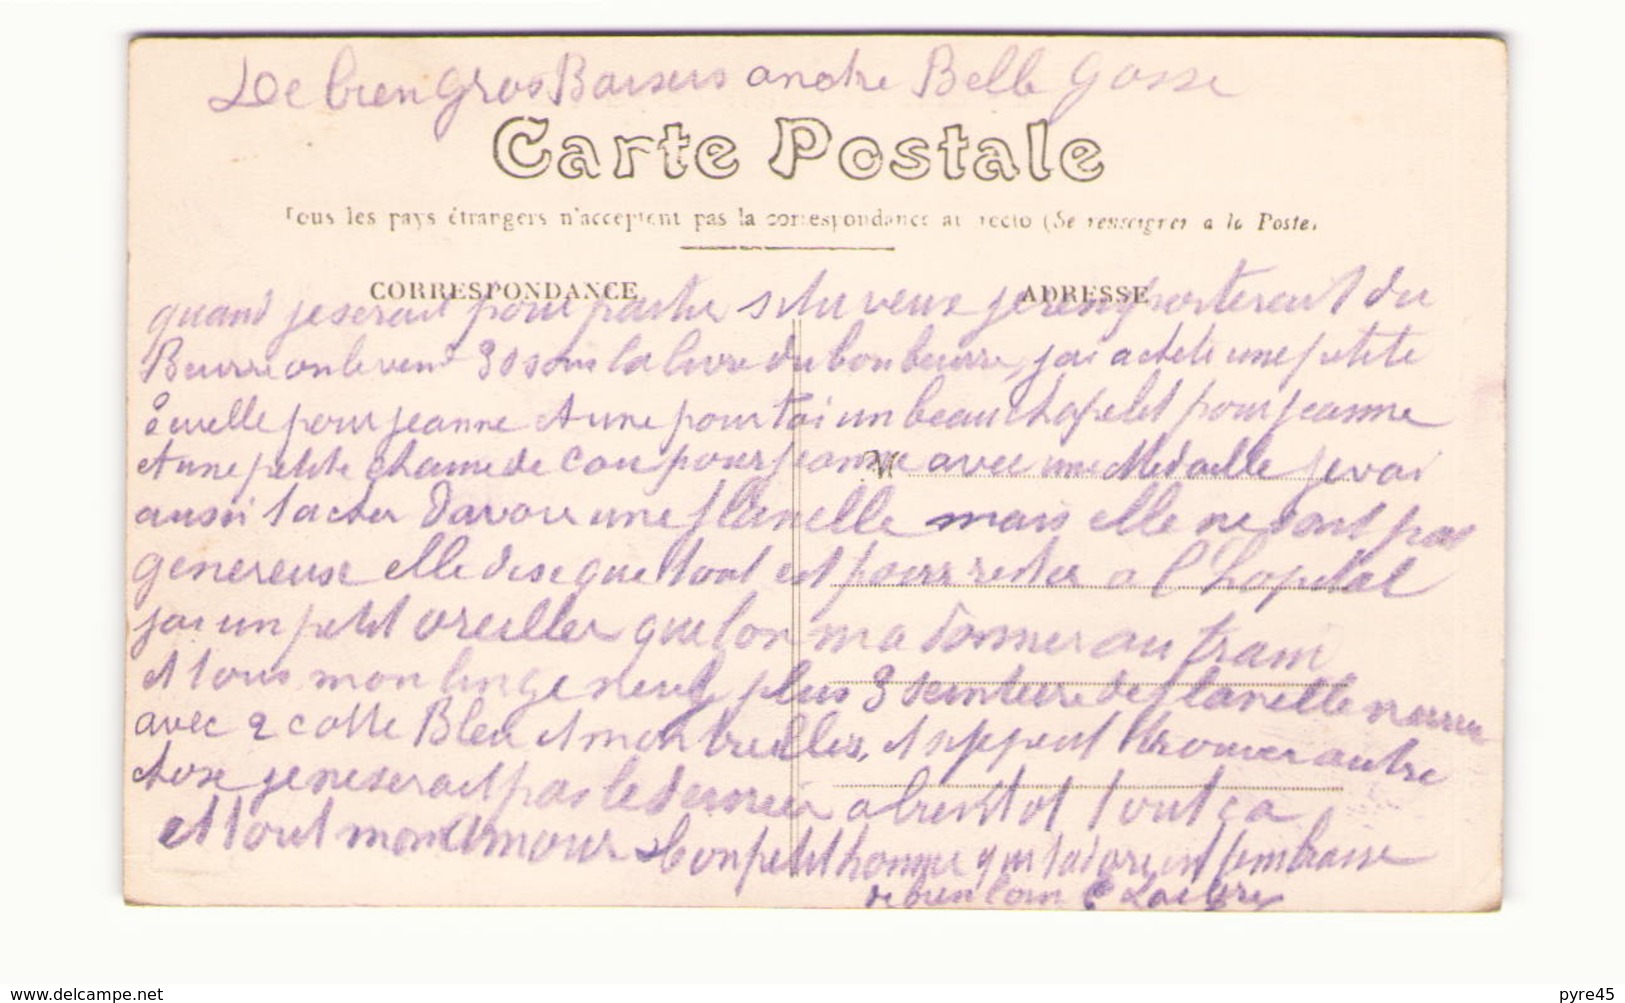 De bien gros Baisers andre Belle gosse
Carte Postale
Tous les pays étrangers n'acceptent pas la correspondance au recto (Se renseigner a la Poste.
CORRESPONDANCE
ADRESSE
quand je serait pour partir situ veux je remporterait du
Beurre on le vend 30 sous la livre du bon beurre, jai acheté une petite
écuelle pour jeanne et une pour toi un beau chapelet pour jeanne
M
et une petite chaine de cou pour jeanne avec une Medaille je vai
aussi tacher davoir une flanelle mais elle ne sont pas
genereuse elle dise que tout est pour rester a l'hopital
jai un petit oreiller que lon ma donner au tram
et tous mon linge neuf plus 3 seinture de flanelle
avec 2 cotte Bleu et mon et si peut trouver autre
chose je ne serait pas le dernier a bientot tout ça
et tout mon Amour ton petit homme qui tadore et tembrasse
de bien loin
www.delcampe.net
pyre45